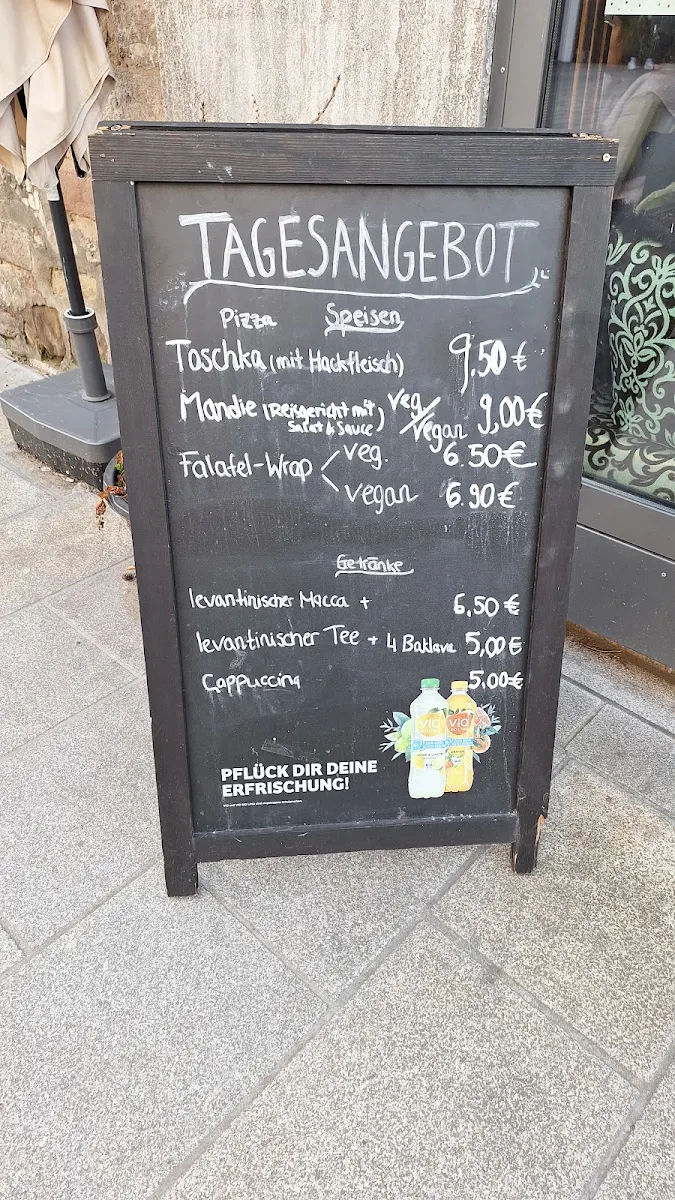 TAGESANGEBOT
Pizza Speisen
Toschka (mit Hackfleisch) 9,50 €
Mandie (Reisgericht mit Salat & Sauce) veg/vegan 9,00 €
Falafel-Wrap veg. 6.50 €
vegan 6.90 €
Getränke
levantinischer Macca + 6,50 €
levantinischer Tee + 4 Baklava 5,00 €
Cappuccing 5.00 €
PFLÜCK DIR DEINE
ERFRISCHUNG!
ViO
ViO